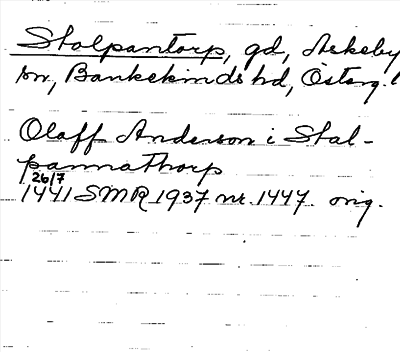 Stalpantorp, gd, Askeby
sn, Bankekinds hd, Österg.
Olaff Anderson i Stal-
pannathorp
26/7
1441 SMR 1937 nr. 1447. orig.